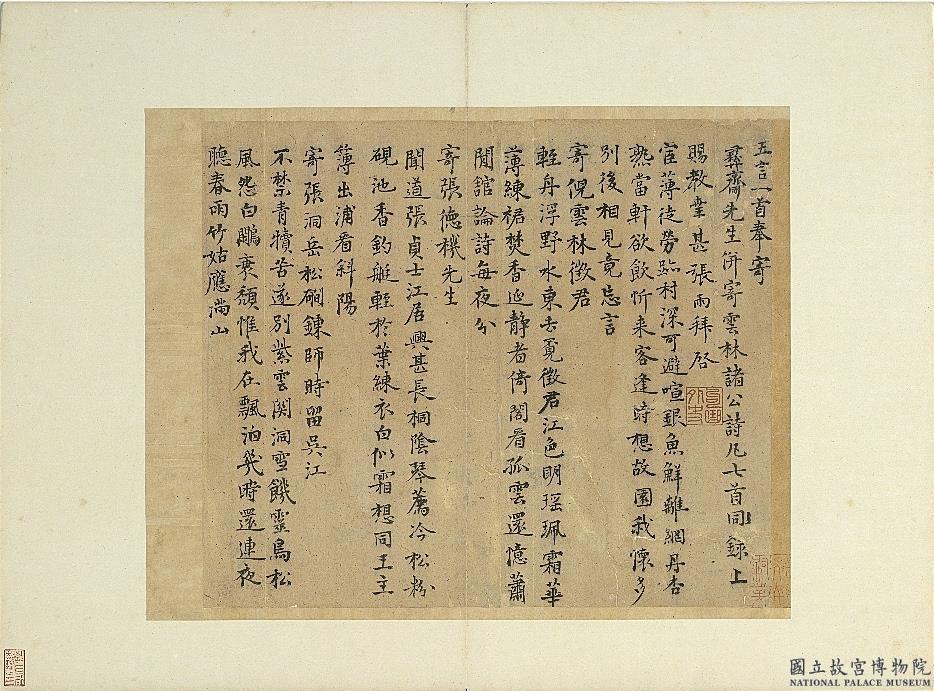 五言一首奉寄
彝齋先生併寄雲林諸公詩凡七首同錄上
賜教業甚張雨拜啓
宦薄徒勞
村深可避喧銀魚鮮離網丹杏
熟當軒欲飲忻来客逢時想故園我懷多
別後相見竟忘言
寄倪雲林徵君
輕舟浮野水東去覓徵君江色明瑶珮霜華
薄練裙焚香延静者倚閣看孤雲還憶蕭
閒館論詩每夜分
寄張德機先生
聞道張貞士江居興甚長桐陰琴薦冷松粉
硯池香釣艇輕於葉練衣白似霜想同王主
簿出浦看斜陽
寄張洞岳松磵鍊師時留吳江
不禁青犢苦遂別紫雲関洞雪饑靈鳥松
風怨白鷴衰顏惟我在飄泊幾時還連夜
聽春雨竹姑應滿山
國立故宮博物院
NATIONAL PALACE MUSEUM